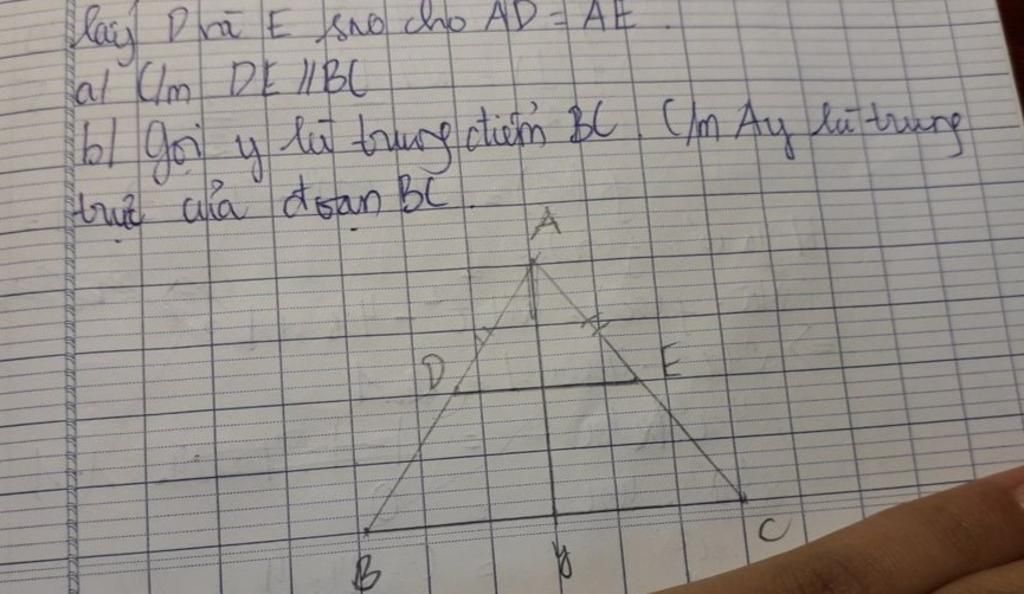 lấy D và E sao cho AD = AE.
a) C/m DE // BC
b) gọi y là trung điểm BC. C/m Ay là trung
trực của đoạn BC.
A
D E
B y C